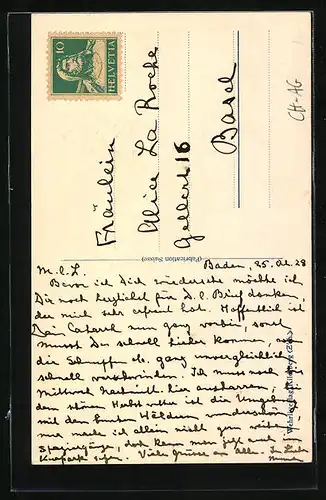 10
HELVETIA
Fräulein
Alice La Roche
Gellert 16
Basel
CH-AG
(Fabrication Suisse)
Baden, 25. Okt. 28
M. l. L.
Bevor ich Dich wiedersehe möchte ich
Dir noch herzlichst für D. l. Brief danken,
der mich sehr erfreut hat. Hoffentlich ist
Dein Catarrh nun ganz vorbei, sonst
musst Du schnell hieher kommen, wo
die Schnupfen etc. ganz unvergleichlich
schnell verschwinden. Ich muss noch bis
Mittwoch Nachmitt. hier ausharren, bei
dem schönen Herbstwetter ist die Umgebung
mit den bunten Wäldern wundervoll
nur mache ich allein nicht gern weite
Spaziergänge, doch kann man jetzt auch im
Kurpark sitzen. Viele Grüsse an alle. In Liebe
Wehrliverlag Kilchberg (Zürich)